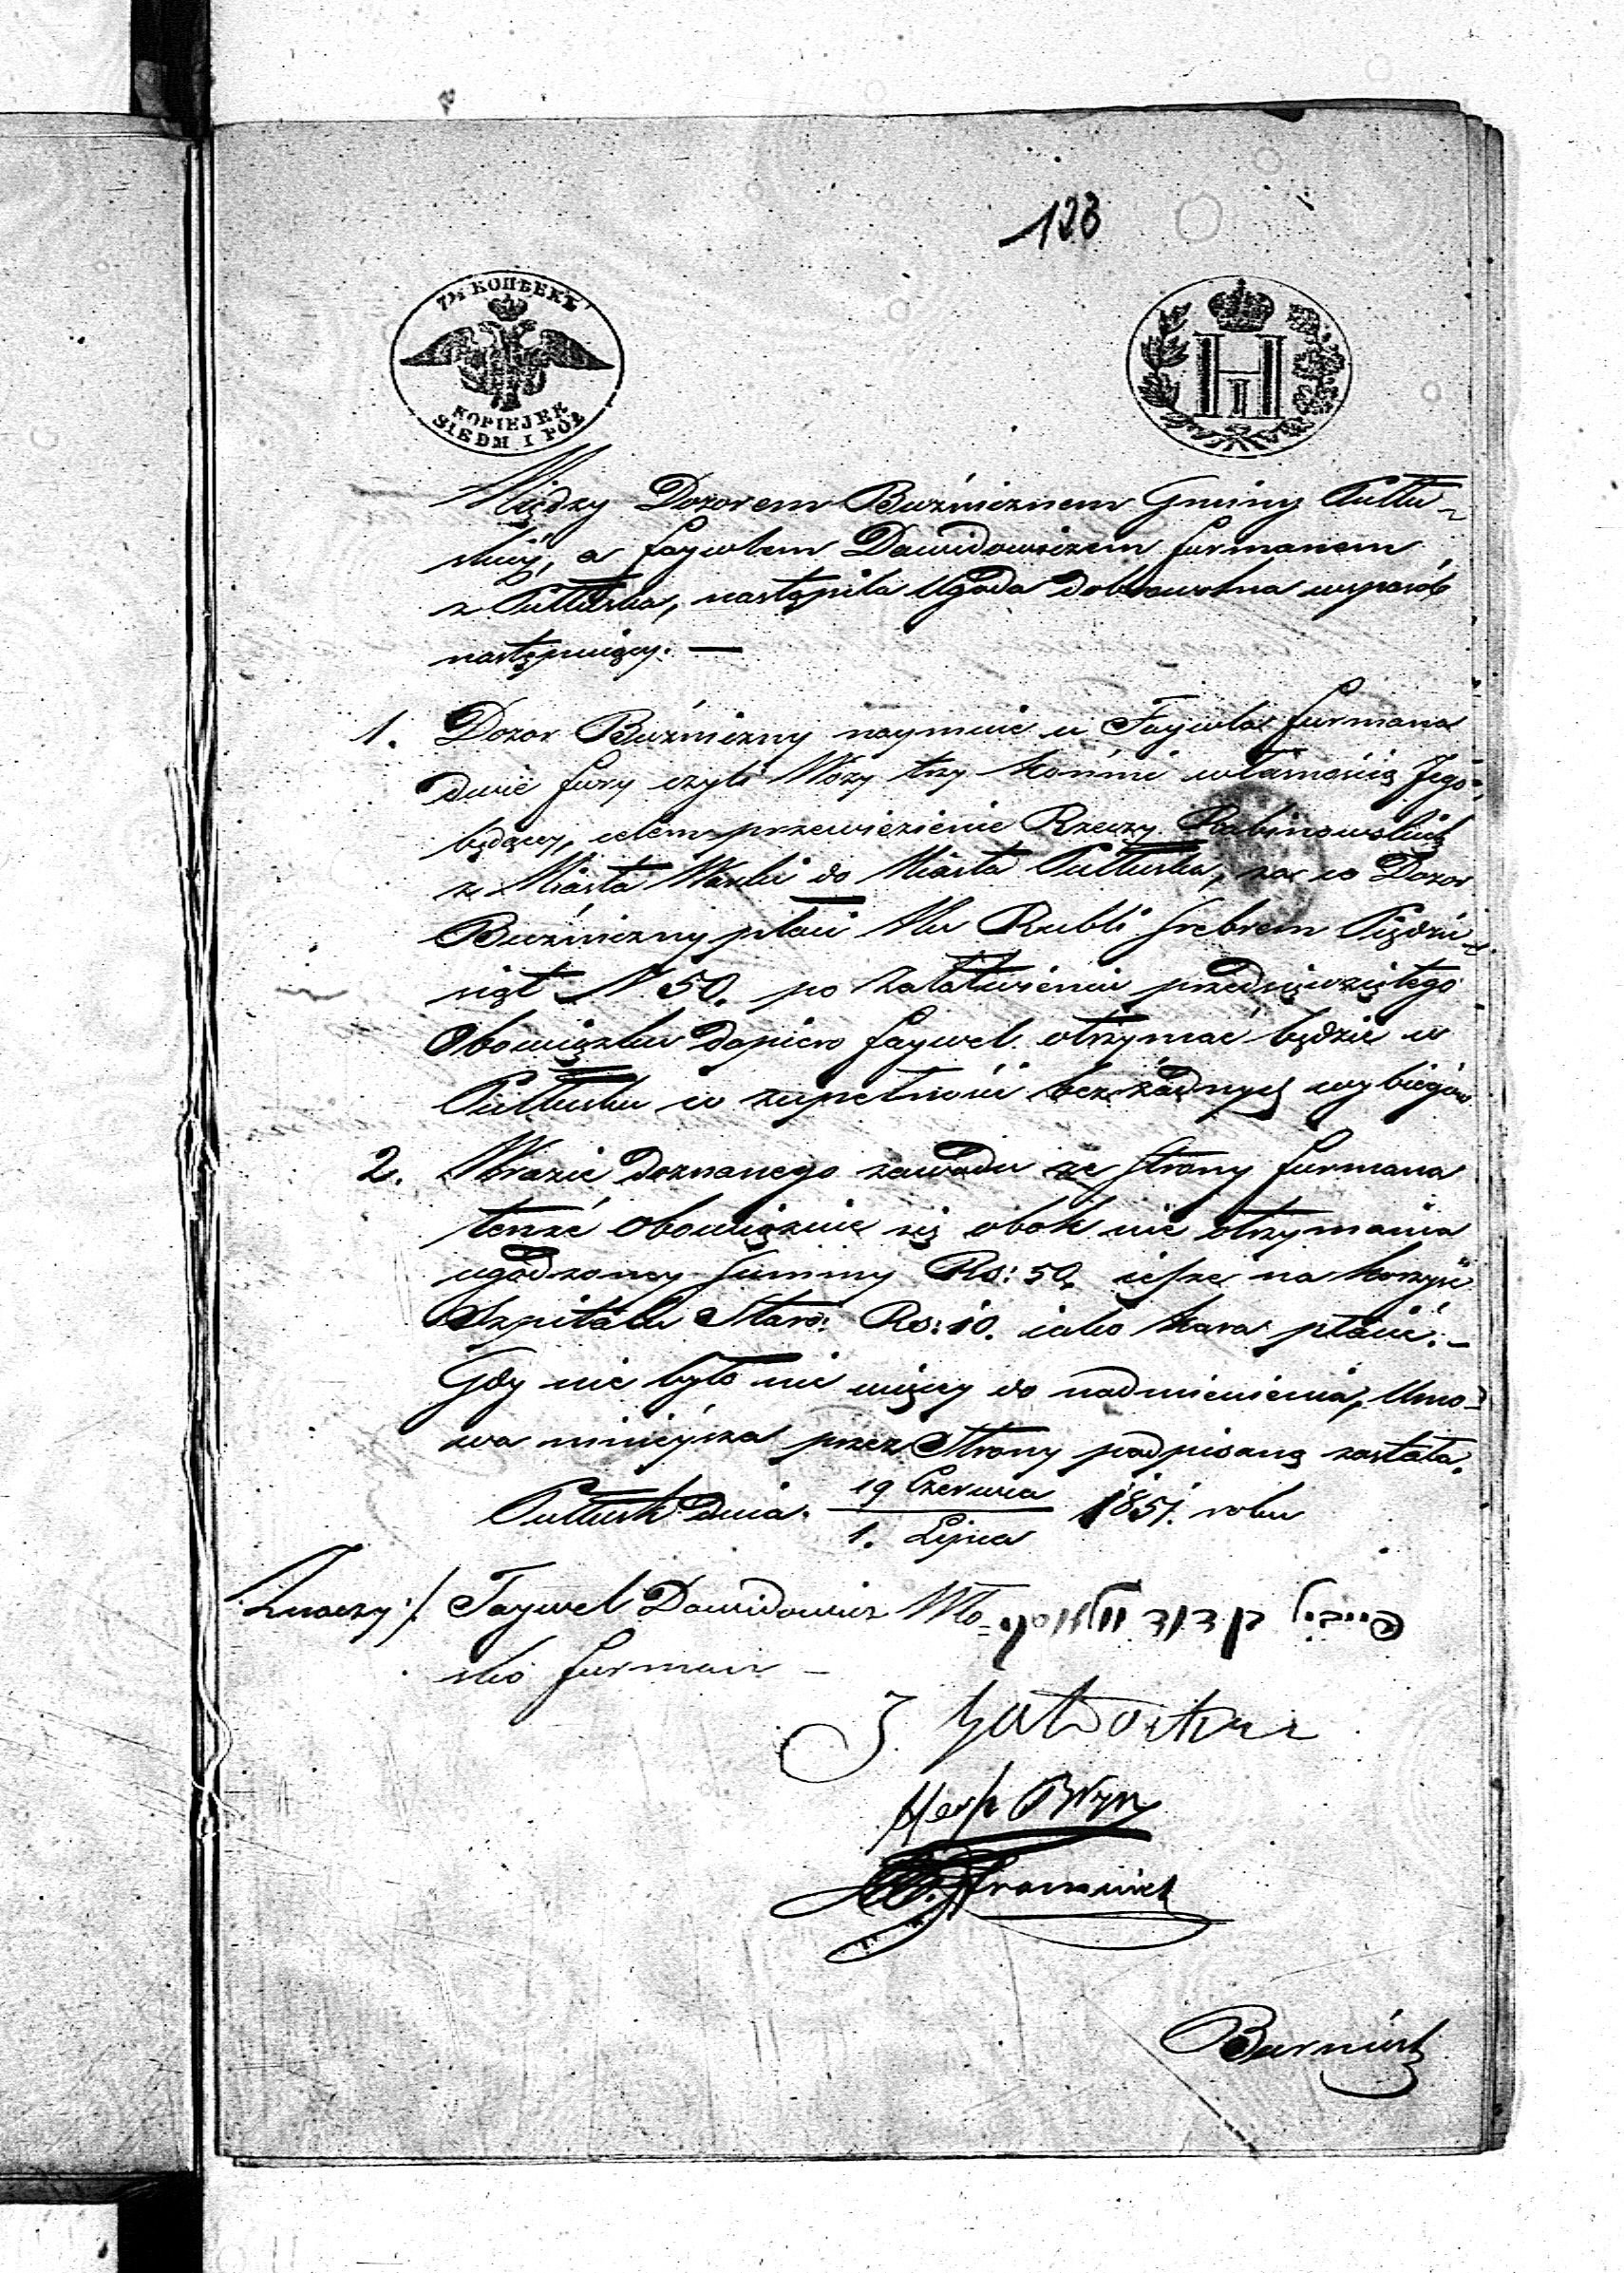 123
7½ КОПѢЕКЪ
KOPIEJEK
SIEDM I PÓŁ
Między Dozorem Buźnicznem Gminy Pułtu-
skiéj, a Faywlem Dawidowiczem furmanem
z Pułtuska, nastąpiła Ugoda dobrowolna wsposób
następuiący. —
1. Dozor Buźniczny naymuie u Faywla furmana
dwie fury czyli Wozy trzy końmi własnością Jego
będący, celem przewiezienie Rzeczy Rabinowskich
z Miasta Warki do Miasta Pułtuska, za co Dozor
Buźniczny płaci Mu Rubli Srebrem Pięździe-
siąt N 50. po załatwieniu przedsięwziętego
Obowiązku dopiero Faywel otrzymać będzie w
Pułtusku w zupełności bez żadnych wybiegów
2. Wrazie doznanego zawodu ze Strony furmana
tenże Obowiązuie się obok nie otrzymania
ugodzoney Summy Rs: 50, ieszcze na korzyść
Szpitalu Staro: Rs: 10. iako kara płacić. —
Gdy nic było nic więcy do nadmienienia, Umo-
wa ninieysza przez Strony podpisaną została.
Pułtusk dnia 19 Czerwca / 1. Lipca 1851. roku
Znaczy :/ Faywel Dawidowicz Wło- פייביל בן דוד
ski furman —
Hersh
Burmistrz